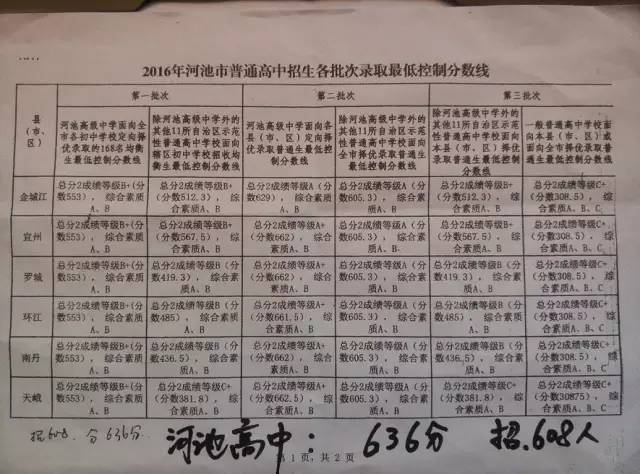 2016年河池市普通高中招生各批次录取最低控制分数线
县(市、区) 第一批次 第二批次 第三批次
河池高级中学面向全市各初中学校定向择优录取的168名均衡生最低控制分数线
除河池高级中学外的其他11所自治区示范性普通高中学校面向辖区初中学校招收均衡生最低控制分数线
河池高级中学面向各县(市、区)定向择优录取普通生最低控制分数线
除河池高级中学外的其他11所自治区示范性普通高中学校面向全市择优录取普通生最低控制分数线
除河池高级中学外的其他11所自治区示范性普通高中学校面向本县(市、区)择优录取普通生最低控制分数线
一般普通高中学校面向本县(市、区)或面向全市择优录取普通生最低控制分数线
金城江 总分2成绩等级B+(分数553),综合素质A、B 总分2成绩等级B+(分数512.3),综合素质A、B 总分2成绩等级A(分数629),综合素质A、B 总分2成绩等级A(分数605.3),综合素质A、B 总分2成绩等级B+(分数512.3),综合素质A、B 总分2成绩等级C+(分数308.5),综合素质A、B、C
宜州 总分2成绩等级B+(分数553),综合素质A、B 总分2成绩等级B+(分数567.5),综合素质A、B 总分2成绩等级A+(分数662),综合素质A、B 总分2成绩等级A(分数605.3),综合素质A、B 总分2成绩等级B+(分数567.5),综合素质A、B 总分2成绩等级C+(分数308.5),综合素质A、B、C
罗城 总分2成绩等级B+(分数553),综合素质A、B 总分2成绩等级B(分数419.3),综合素质A、B 总分2成绩等级A+(分数662),综合素质A、B 总分2成绩等级A(分数605.3),综合素质A、B 总分2成绩等级B(分数419.3),综合素质A、B 总分2成绩等级C+(分数308.5),综合素质A、B、C
环江 总分2成绩等级B+(分数553),综合素质A、B 总分2成绩等级B(分数485),综合素质A、B 总分2成绩等级A+(分数661.5),综合素质A、B 总分2成绩等级A(分数605.3),综合素质A、B 总分2成绩等级B(分数485),综合素质A、B 总分2成绩等级C+(分数308.5),综合素质A、B、C
南丹 总分2成绩等级B+(分数553),综合素质A、B 总分2成绩等级B(分数436.5),综合素质A、B 总分2成绩等级A+(分数662),综合素质A、B 总分2成绩等级A(分数605.3),综合素质A、B 总分2成绩等级B(分数436.5),综合素质A、B 总分2成绩等级C+(分数308.5),综合素质A、B、C
天峨 总分2成绩等级B+(分数553),综合素质A、B 总分2成绩等级C+(分数381.8),综合素质A、B 总分2成绩等级A+(分数662.5),综合素质A、B 总分2成绩等级A(分数605.3),综合素质A、B 总分2成绩等级C+(分数381.8),综合素质A、B 总分2成绩等级C+(分数30875),综合素质A、B、C
招608、分636分
河池高中: 636分 招.608人
第1页,共2页